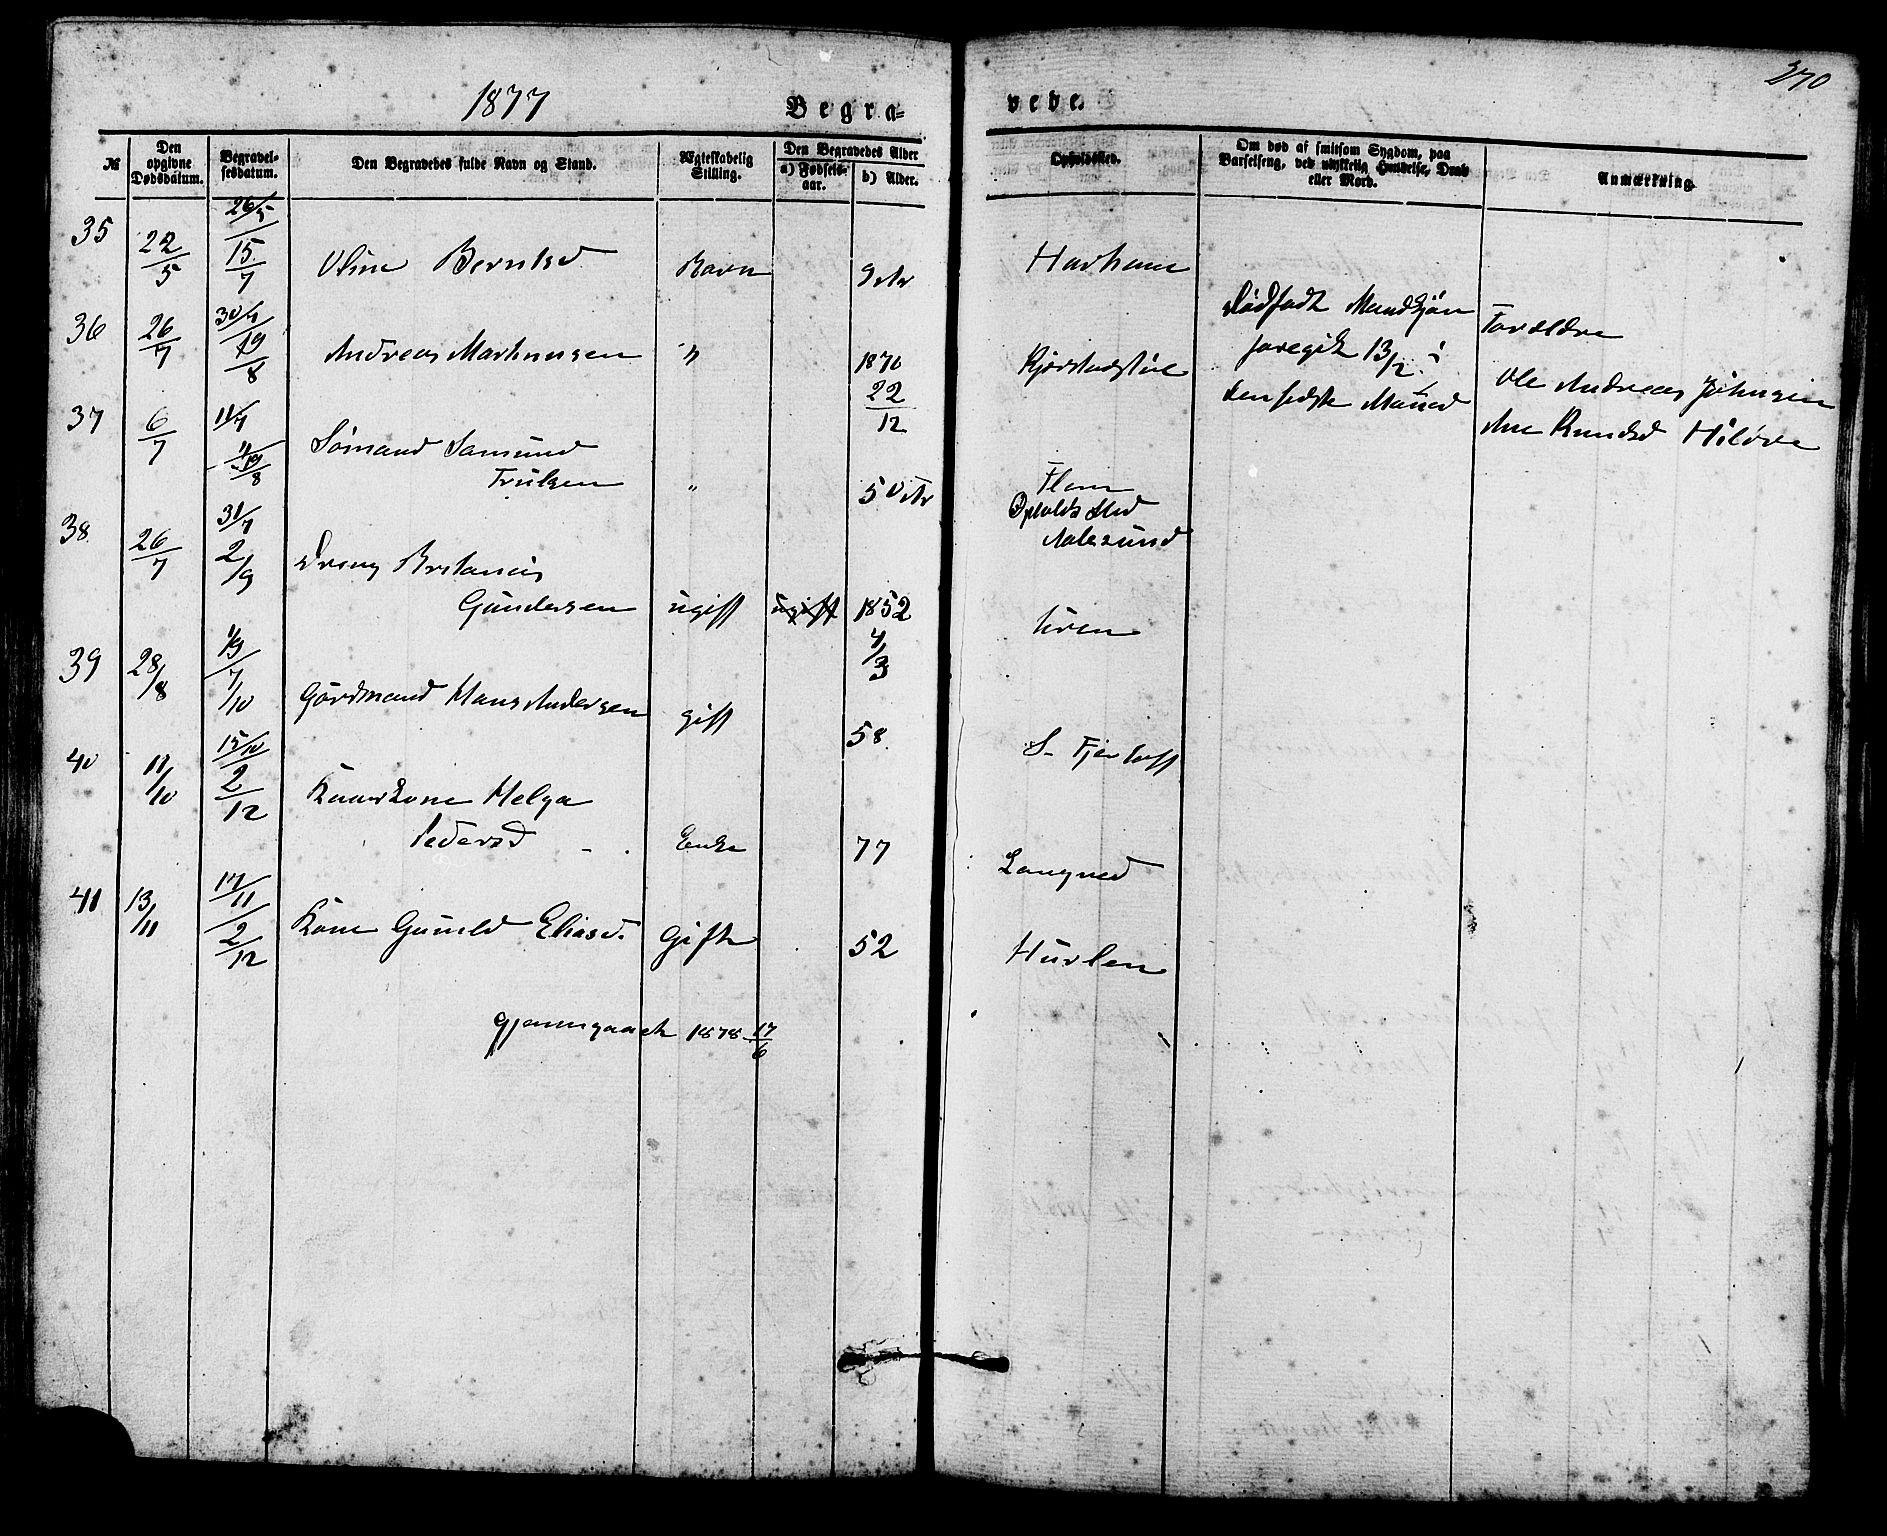 270
1877
Begra= vede.
№
Den opgivne Dødsdatum.
Begravel-sesdatum.
Den Begravedes fulde Navn og Stand.
Ægteskabelig Stilling.
Den Begravedes Alder
a) Fødsels-aar.
b) Alder.
Opholdssted.
Om død af smitsom Sygdom, paa Barselseng, ved ulykkelig Hændelse, Drab eller Mord.
Anmærkning
35 22/5 26/5 15/7 Oline Berntsd Barn 9 Ar Harham
36 26/7 30/7 19/8 Andreas Martinusen " 1876 22/12 Kjerstadstøle
Dødfødt Mandkjøn
foregik 13/2 i
den sidste Maaned
Forældre
Ole Andreas Johnsen
Ane Knudsd Hildre
37 6/7 11/7 19/8 Sømand Samund
Trulsen " 50 Ar Flem
Opholds Sted
Aalesund
38 26/7 31/7 2/9 Dreng Britanius
Gundersen ugift ugift 1852 4/3 Uren
39 28/8 1/9 7/10 Gårdmand Hans Andersen gift 58 S. Fjørtoft
40 11/10 15/10 2/12 Kaarkone Helga
Pedersd Enke 77 Longved
41 13/11 17/11 2/12 Kone Gunild Eliasd. Gift 52 Hurlen
Gjennemgaaet 1878 17/6